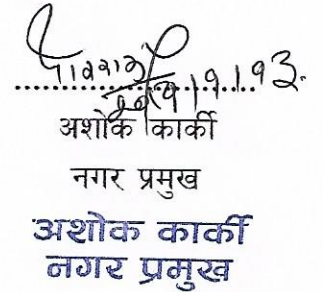 अशोक कार्की
नगर प्रमुख
अशोक कार्की
नगर प्रमुख